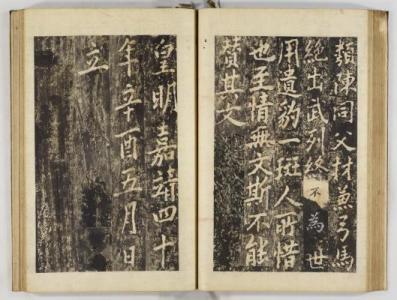 類陳同父材兼弓馬
絶出武列終不為世
用遺豹一斑人所惜
也至情無文斯不能
贊其文
皇明嘉靖四十
年辛酉五月日
立